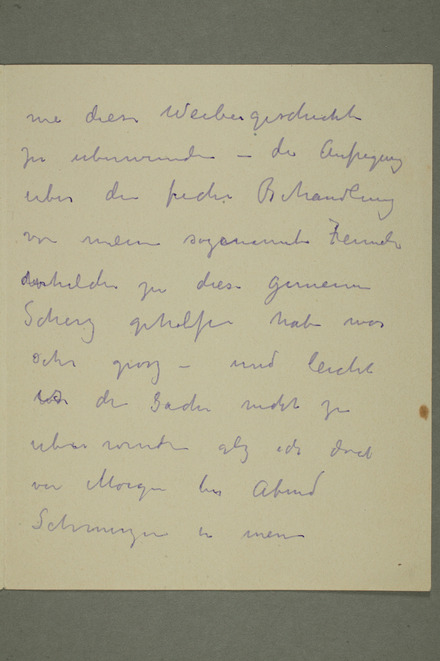 um diese Weibergeschichte
zu überwinden – die Aufregung
über die freche Behandlung
von meine sogenannte Freunde
welche zu diese gemeine
Scherz geholfen habe war
sehr gross – und leicht
war die Sache nicht zu
überwinden als ich dort
von Morgen bis Abend
Schmerzen in mein